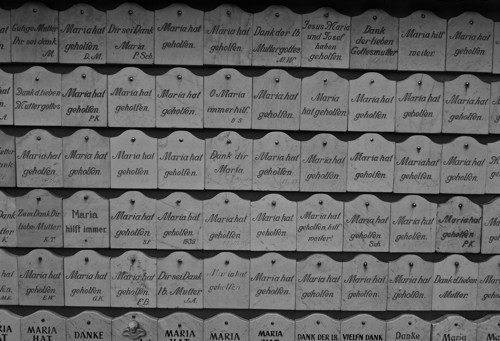 Gütige Mutter
Dir sei dank
M.
Maria hat
geholfen.
D.M.
Dir sei Dank
Maria
P. Sch.
Maria hat
geholfen.
Maria hat
geholfen.
Dank der lb.
Muttergottes
M.W.
Jesus Maria
und Josef
haben
geholfen
Dank
der lieben
Gottesmutter
Maria hilf
weiter
Maria hat
geholfen.
Dank d. lieben
Muttergottes
Maria hat
geholfen.
P.K.
Maria hat
geholfen.
Maria hat
geholfen.
O Maria
immer hilf.
Maria hat
geholfen.
Maria
hat geholfen
Maria hat
geholfen.
Maria hat
geholfen.
Maria hat
geholfen.
Maria hat
geholfen.
Maria hat
geholfen.
Maria hat
geholfen.
Maria hat
geholfen.
Dank dir
Maria.
Maria hat
geholfen.
Maria hat
geholfen.
Maria hat
geholfen.
Maria hat
geholfen.
Maria hat
geholfen.
Zum Dank Dir
liebe Mutter
E.T
Maria
hilft immer.
Maria hat
geholfen.
Maria hat
geholfen.
1935
Maria hat
geholfen.
Maria hat
geholfen.
Maria hat
geholfen, hilf
weiter!
Maria hat
geholfen.
Sch
Maria hat
geholfen.
Maria hat
geholfen.
P.K
Maria hat
geholfen.
E.W.
Maria hat
geholfen.
G.K
Maria hat
geholfen.
F.B.
Dir sei Dank
lb. Mutter
J.A.
Maria hat
geholfen.
Maria hat
geholfen.
Maria hat
geholfen.
Maria hat
geholfen.
Maria hat
geholfen.
Dank d. lieben
Mutter.
MARIA
HAT
MARIA
HAT
DANKE
MARIA
HAT
MARIA
HAT
MARIA
DANK DER LB.
VIELEN DANK
Danke
Maria